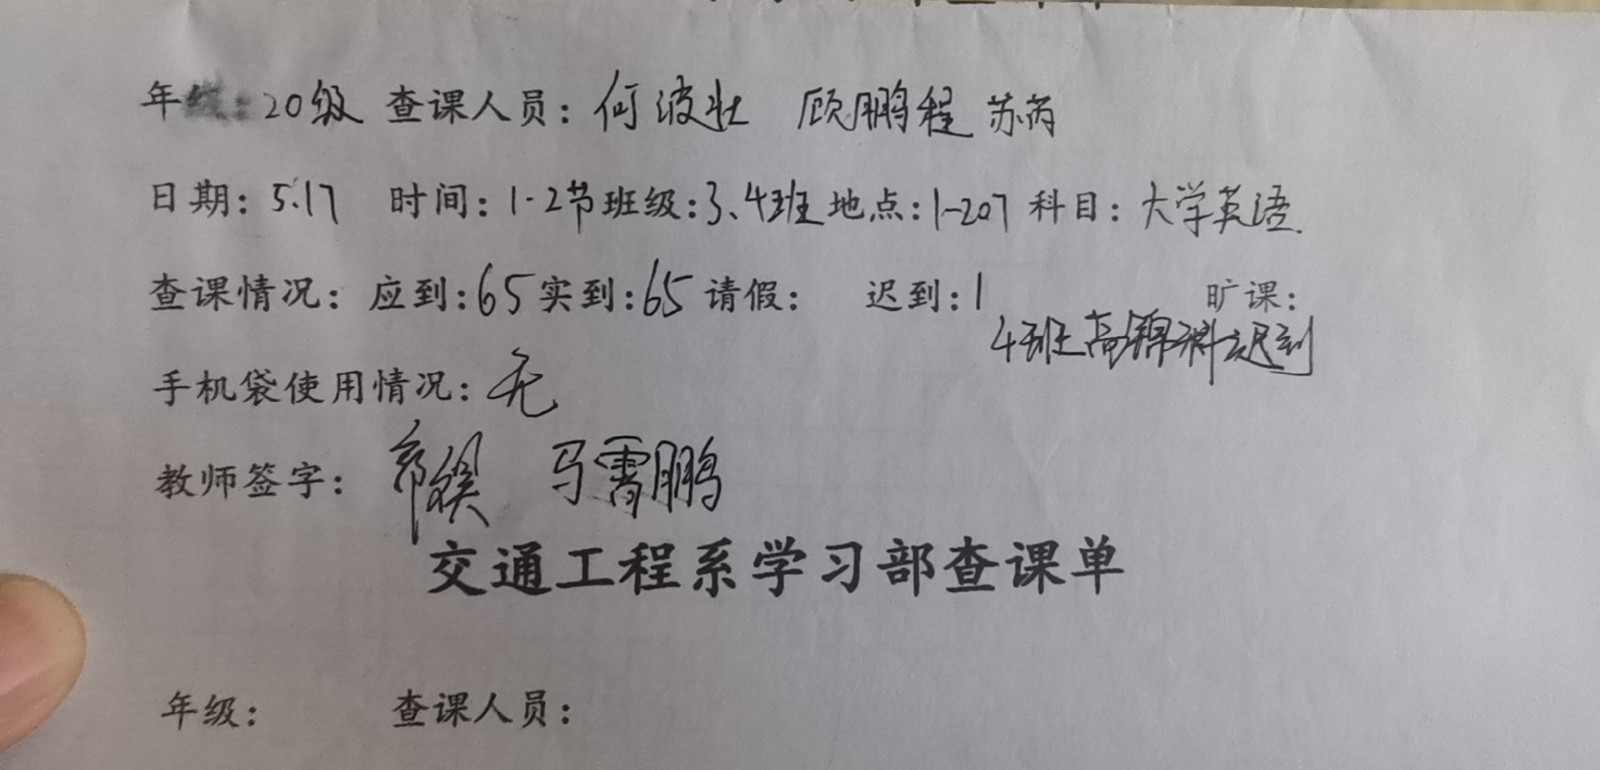 年级：20级 查课人员：何波壮 顾鹏程 苏芮
日期：5.17 时间：1-2节 班级：3、4班 地点：1-207 科目：大学英语.
查课情况：应到：65 实到：65 请假： 迟到：1 旷课：
4班高锦科迟到
手机袋使用情况：无
教师签字： 马霄鹏
交通工程系学习部查课单
年级： 查课人员：